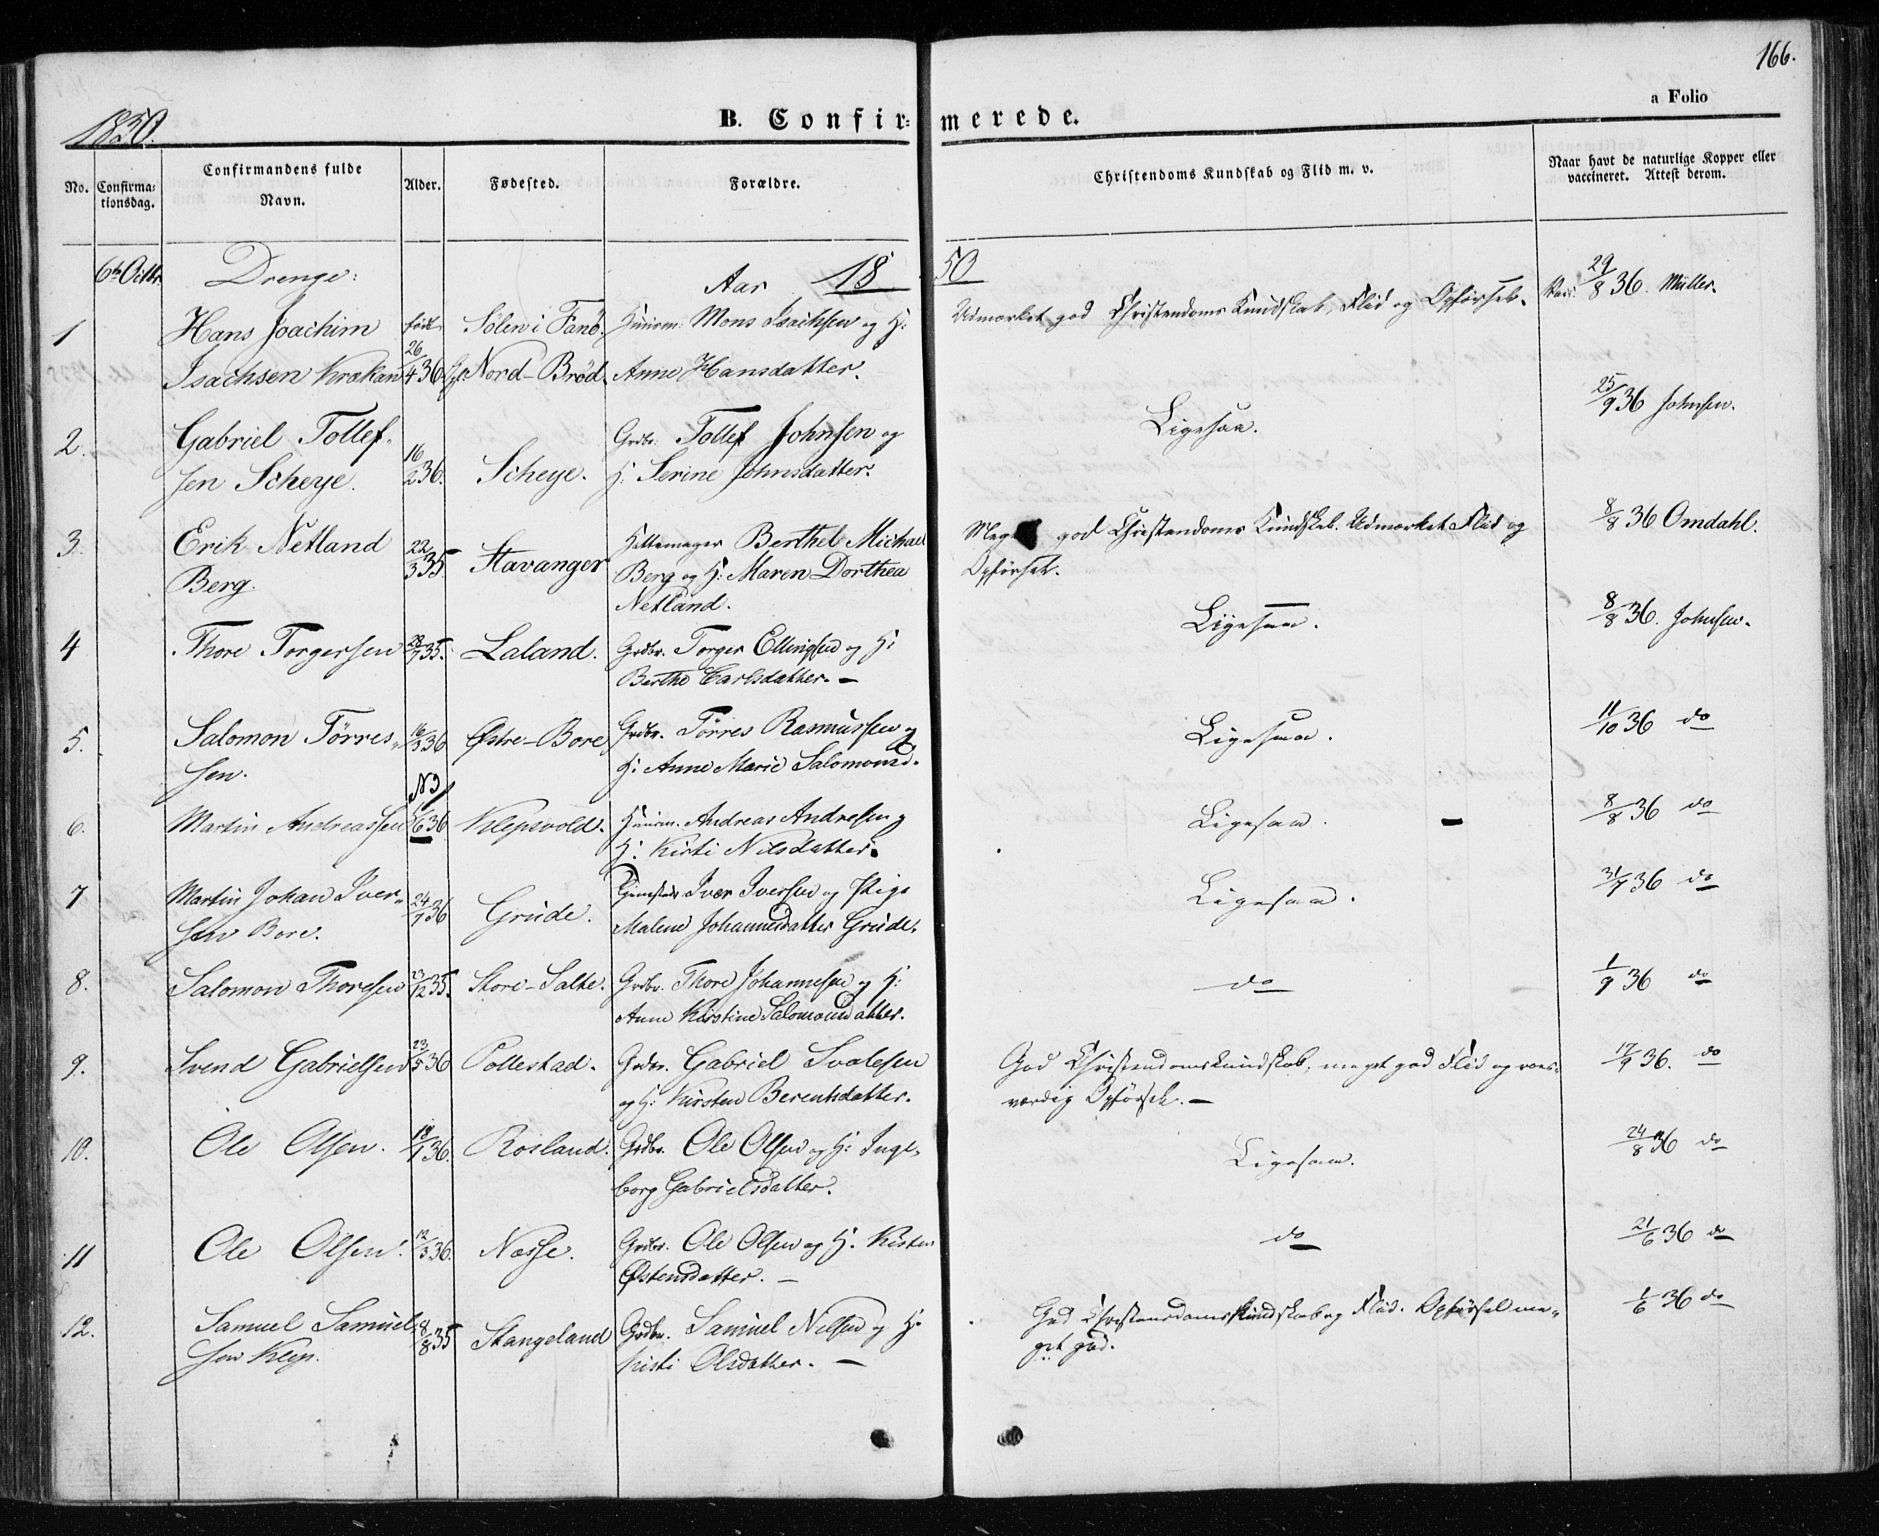 166.
a Folio
1850.
B. Confirmerede.
No.
Confirma=
tionsdag.
Confirmandens fulde
Navn.
Alder.
Fødested.
Forældre.
Christendoms Kundskab og Flid m. v.
Naar havt de naturlige Kopper eller
vaccineret. Attest derom.
6te Octbr.
Drenge:
Aar 1850
1
Hans Joachim
Isachsen Krakan
født
26/4 36
Sølen i Fanø
Nord-Brød.
Huusm: Mons Isachsen og H:
Anne Hansdatter.
Udmærket god Christendoms Kundskab, Flid og Opførsel.
Vacc. 29/8 36. Müller.
2.
Gabriel Tollef-
sen Scheye.
16/2 36.
Scheye.
Grdbr. Tollef Johnsen og
H: Serine Johnsdatter.
Ligesaa.
25/9 36 Johnsen.
3.
Erik Netland
Berg.
22/3 35
Stavanger
Berthel Michael
Berg og H: Maren Dorthea
Netland.
Meget god Christendoms Kundskab. Udmærket Flid og
Opførsel.
8/8 36 Omdahl.
4
Thore Torgersen
28/7 35.
Laland.
Grdbr. Torger Ellingsen og H:
Berthe Carlsdatter. —
Ligesaa.
8/8 36. Johnsen.
5.
Salomon Tørres-
sen.
16/3 36
Østre-Bore
Grdbr. Tørres Rasmussen og
H: Anne Marie Salomonsd.
Ligesaa.
11/10 36 do
6.
Martin Andreassen
N3
/6 36
Klepsvold.
Huusm. Andreas Andresen og
H: Kirsti Nilsdatter.
Ligesaa. -
8/8 36 do
7
Martin Johan Iver-
sen Bore.
24/1 36
Grude.
Ivar Iversen og Pige
Malene Johannesdatter Grude.
Ligesaa.
31/7 36 do
8.
Salomon Thoresen
23/12 35.
Store-Salte.
Grdbr. Thore Johannesen og H:
Anne Kirstine Salomonsdatter.
do
1/9 36 do
9.
Svend Gabrielsen
23/5 36
Pollestad.
Grdbr. Gabriel Svalesen
og H: Kirsten Berentsdatter.
God Christendomskundskab, meget god Flid og roes-
værdig Opførsel. —
17/9 36. do
10.
Ole Olsen.
18/1 36.
Rosland.
Grdbr. Ole Olsen og H: Inge-
borg Gabrielsdatter.
Ligesaa.
24/8 36 do
11
Ole Olsen.
12/3 36.
Næsse.
Grdbr. Ole Olsen og H. Kirsten
Østensdatter. —
do
21/6 36 do
12.
Samuel Samuel-
sen Klep.
8/8 35
Stangeland
Grdbr. Samuel Nilsen og H:
Kisti Olsdatter. —
God Christendomskundskab og Flid. Opførsel me-
get god.
1/6 36 do